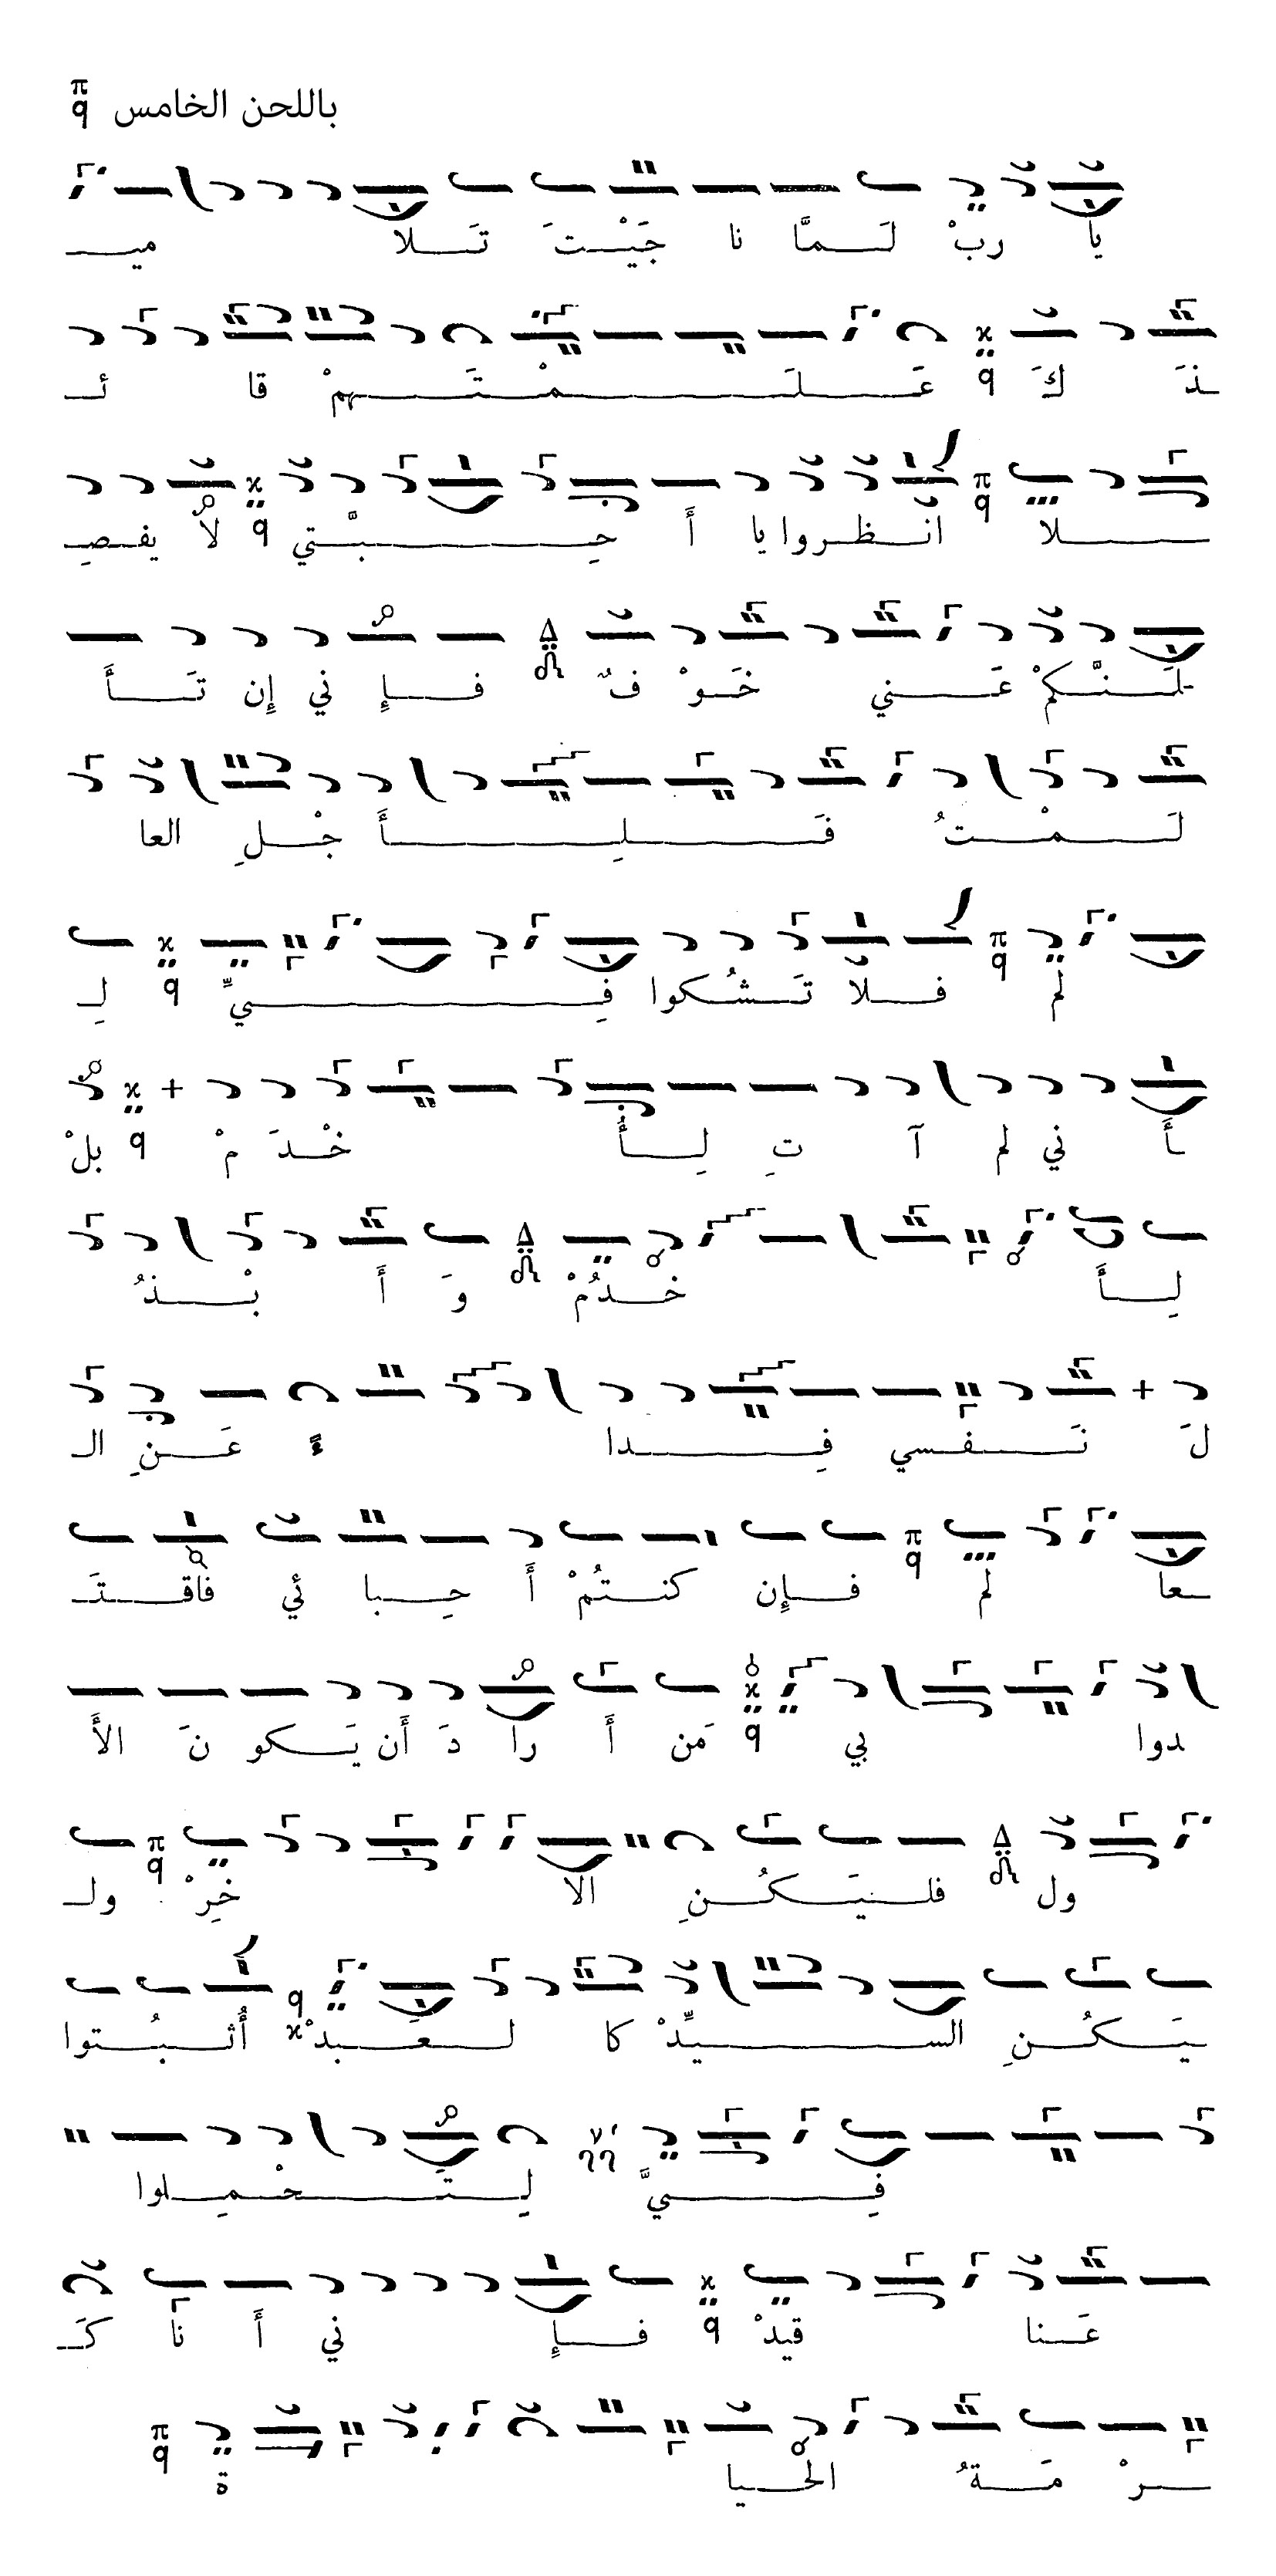 باللحن الخامس
يا ربْ لَمَّا ناجَيْتَ تَلاميـ
ـذَكَ عَلَمْتَهمْ قائـ
ـلا انْظروا يا أَحِبَّتي لا يفصِـ
ـلَنَّكمْ عَني خَوْفٌ فإِني إِن تَأَ
لَمْتُ فَلِأَجْلِ العا
لم فلا تَشُكوا فِيِّ لِـ
ـأَني لم آتِ لِأُخْدَمْ بلْ
لِأَخْدُمْ وَأَبْذُ
لَ نَفسي فِداءً عَنِ الـ
ـعالم فإِن كنتُمْ أَحِبائي فَاقتَـ
ـدوا بي مَن أَرادَ أَن يَكونَ الأَ
ول فلنيَكُنِ الاخِرْ ولـ
ـيَكُنِ السيِّدْ كالعَبدْ أُثبُتوا
فِيَّ لِتَحْمِلوا
عَناقيدْ فإِني أَنا كَـ
ـرْمَةُ الحْياة